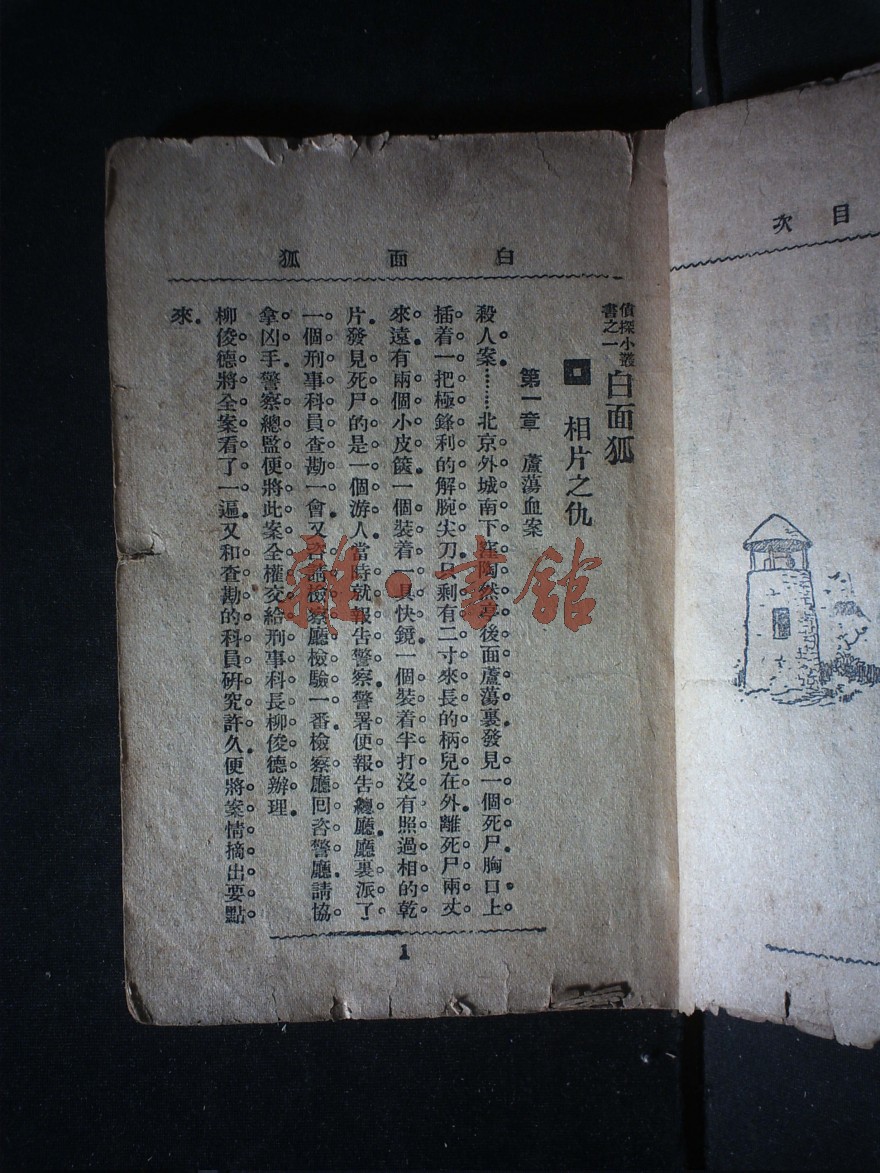 目次
白面狐
偵探小叢
書之一
白面狐
相片之仇
第一章　蘆蕩血案
殺人案………北京外城南下窪陶然亭後面蘆蕩裏發見一個死尸胸口上
插着一把極鋒利的解腕尖刀只剩有二寸來長的柄兒在外離死尸兩丈
來遠有兩個小皮篋一個裝着一具快鏡一個裝着半打沒有照過相的乾
片發見死尸的是一個游人當時就報告警察警署便報告總廳廳裏派了
一個刑事科員查勘一會又咨請檢察廳檢驗一番檢察廳回咨警廳請協
拿凶手警察總監便將此案全權交給刑事科長柳俊德辦理
柳俊德將全案看了一遍又和查勘的科員研究許久便將案情摘出要點
來
1
雜·書館